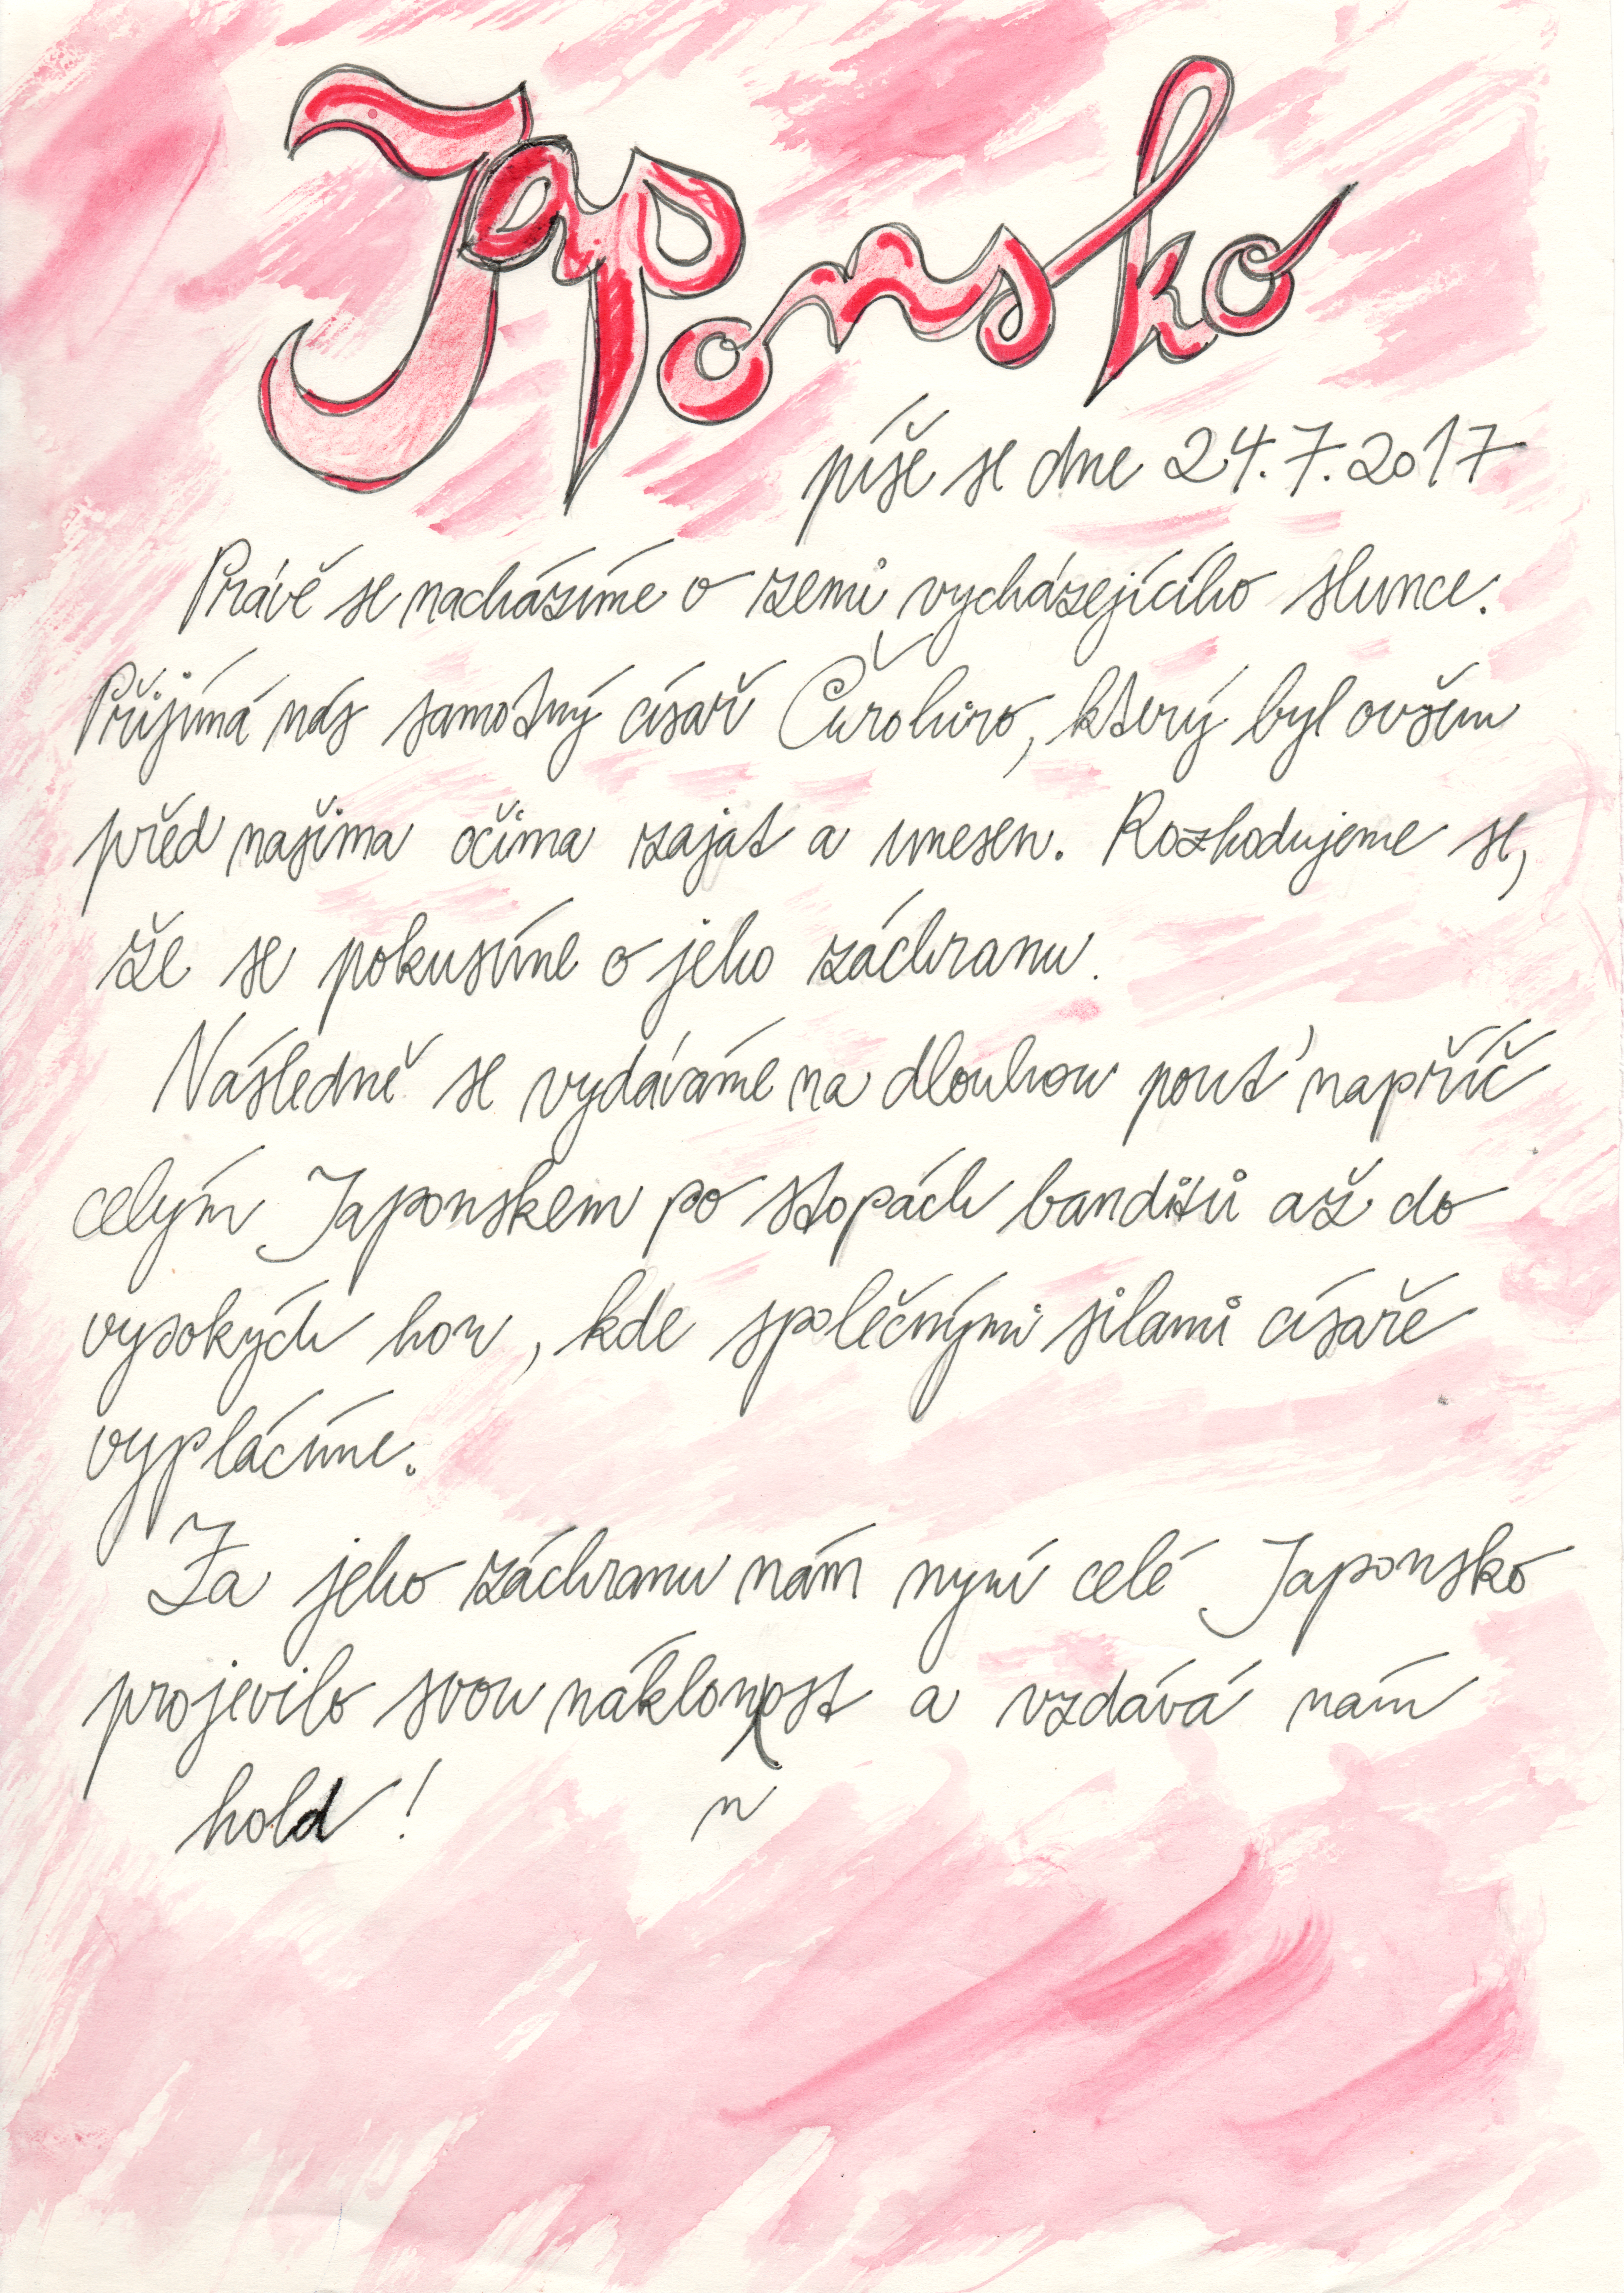 Japonsko
píše se dne 24.7.2017
Právě se nacházíme v zemi vycházejícího slunce.
Přijímá nás samotný císař Čirohiro, který byl ovšem
před našima očima zajat a unesen. Rozhodujeme se,
že se pokusíme o jeho záchranu.
Následně se vydáváme na dlouhou pouť napříč
celým Japonskem po stopách banditů až do
vysokých hor, kde společnými silami císaře
vyplácíme.
Za jeho záchranu nám nyní celé Japonsko
projevilo svou náklonost a vzdává nám
n
hold!